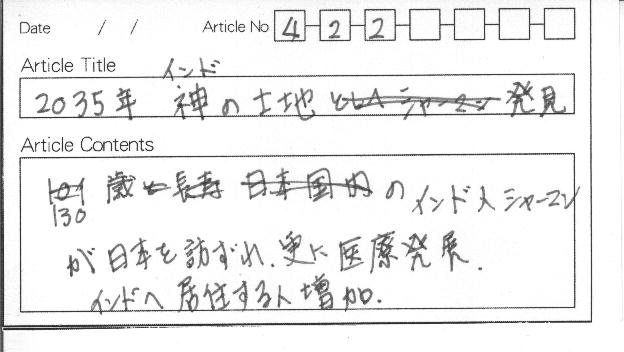 Date / / Article No 4 2 2
Article Title
インド
2035年 神の土地 シャーマン 発見
Article Contents
101 歳と長寿 日本国内のインド人シャーマン
130
が日本を訪ずれ、更に医療発展.
インドへ居住する人増加.